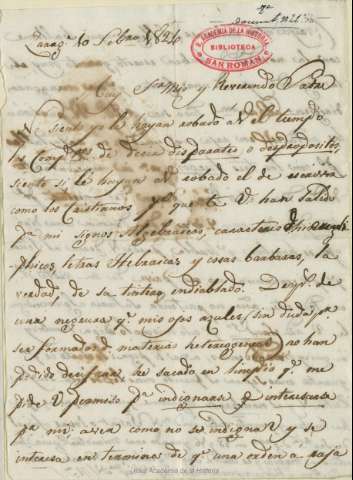 Zarag. 10 Febro 1826
R. ACADEMIA DE LA HISTORIA
BIBLIOTECA
SAN ROMAN
Muy y Reverendo Padre
Siento q. le hayan robado a V. el tiempo
los de decir disparates o despropositos,
siento si le hayan a V. robado el de escrivir
como los Cristianos pr que V. han salido
pa mi signos Algebraicos, caracteres
letras Hebraicas y cosas barbaras, la
verdad, de su tintero endiablado. Despues de
una q. mis ojos azules, sin duda pr
ser formados materia heterogenea, no han
podido descifrar, he sacado en limpio q. me
pide V permiso pa indignarse e interesarse
pr mi avea como no se indignar V y se
interesa en terminos de q. una orden a raja
Real Academia de la Historia